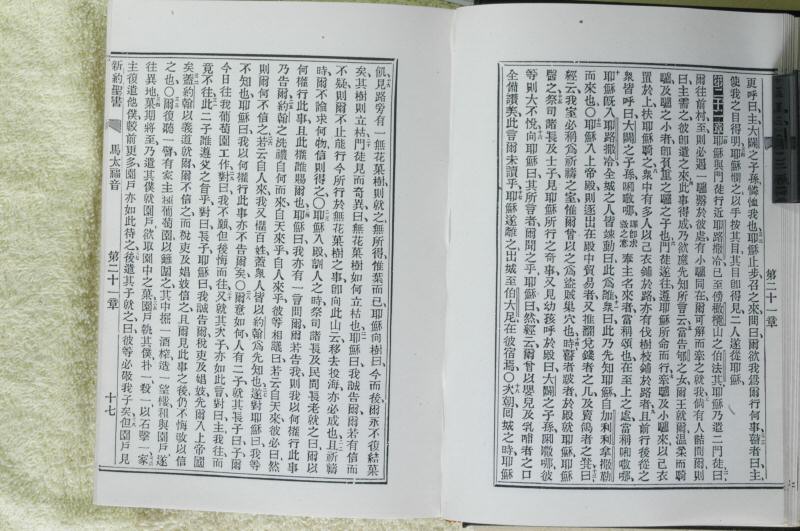 更呼曰主大闢之子孫憐恤我也耶穌止步召之來問曰爾欲我爲爾行何事瞽者曰主
使我之目得明耶穌憫之以手按其目其目卽得見二人遂從耶穌
第二十一章
耶穌與門徒行近耶路撒冷已至傍橄欖山之伯法其耶穌乃遣二門徒曰
爾往前村至則必遇一驢縶於彼處有小驢同在爾可解而牽之就我倘有人詰問爾則
曰主需之彼卽遣之來此事得成乃欲應先知所言云當告郇之女爾王就爾溫柔而騎
驢及驢之小者卽孤重之驢之子也門徒遂往遵耶穌所命而行牽驢及小驢來以己衣
置於上扶耶穌騎之衆中有多人以己衣鋪於路亦有伐樹枝鋪於路者且前行後從之
衆皆呼曰大闢之子孫㗒囄哪 奉主名來者當稱頌也在至上之處當稱㗒囄哪
耶穌旣入耶路撒冷全城之人皆竦動曰此爲誰衆曰此乃先知耶穌自加利利拿撒勒
而來也〇耶穌入上帝殿則逐出在殿中貿易者又推翻兌錢者之几及賣鴿者之凳曰
經云我室必稱爲祈禱之室惟爾曾以之爲盜賊巢穴也時瞽者跛者於殿就耶穌耶穌
醫之祭司諸長及士子見耶穌所行之奇事又見幼孩呼於殿曰大闢之子孫㗒囄哪彼
等則大不悅向耶穌曰其所言者爾聞之乎耶穌曰然經云爾曾以嬰兒及乳哺者之口
全備讚美此言爾未讀乎耶穌遂離之出城至伯大尼在彼宿焉〇次朝回城之時耶穌
第二十一章
飢見路旁有一無花菓樹則就之無所得惟葉而已耶穌向樹曰今而後爾永不復結菓
矣其樹則立枯門徒見而奇異曰無花菓樹如何立枯也耶穌曰我誠告爾爾若有信而
不疑則爾不止能行今所行於無花菓樹之事卽向此山云移去投海亦必成也且祈禱
時爾不論求何物信則得之〇耶穌入殿訓人之時祭司諸長及民間長老就之曰爾以
何權行此事且此權誰賜爾也耶穌曰我亦有一言問爾爾若告我則我以何權行此事
乃告爾約翰之洗禮自何而來自天來乎自人來乎彼等相議曰若云自天來彼必曰然
則爾何不信之若云自人來我又懼百姓蓋衆人皆以約翰爲先知也遂對耶穌曰我等
不知也耶穌曰我以何權行此事亦不告爾矣〇爾意如何人有二子就其長子曰子爾
今日往我葡萄園工作對曰我不願但後悔而往又就其次子亦如此言對曰主我往而
竟不往此二子誰遵父之旨乎對曰長子耶穌曰我誠告爾稅吏及娼妓先爾入上帝國
矣蓋約翰以義道就爾爾不信之而稅吏及娼妓信之且爾見此事之後仍不悔改以信
之也〇爾復聽一譬有家主植葡萄園以籬圍之其中掘一酒醡造一望樓租與園戶遂
往異地菓期將至乃遣其僕就園戶欲取園中之菓園戶執其僕扑一殺一以石擊一家
主復遣他僕較前更多園戶亦如此待之後遣其子就之曰彼等必敬我子矣但園戶見
新約聖書 馬太福音 第二十一章 十七